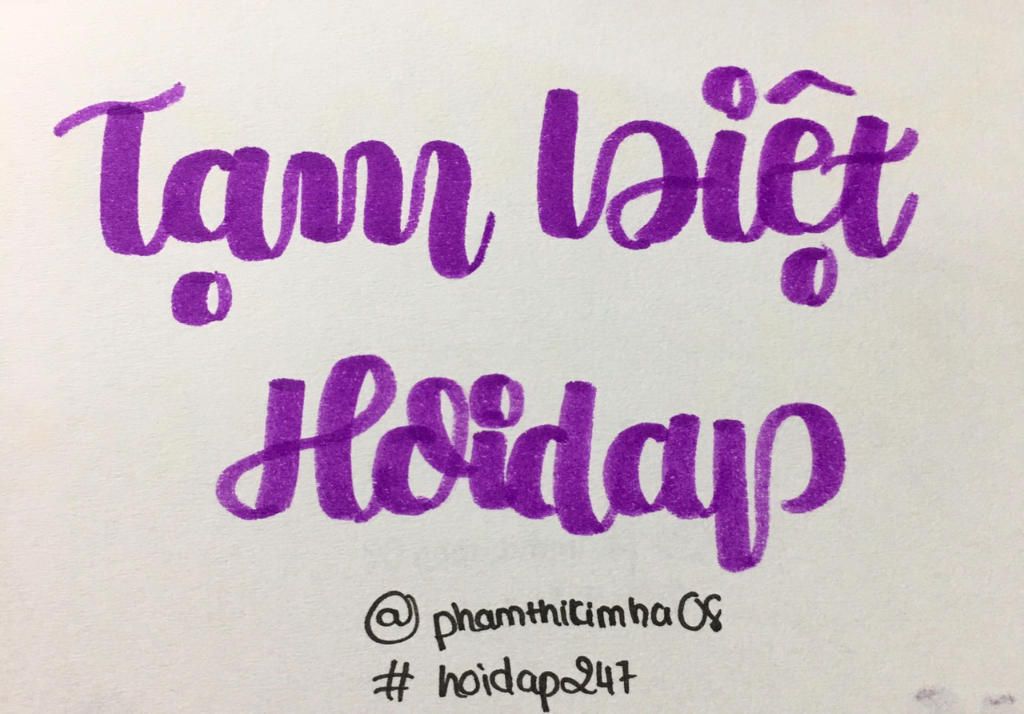 Tạm biệt
Hoidap
@phamthikimha08
# hoidap247